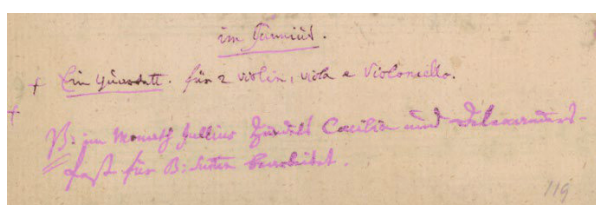 im Junius.
+ Ein Quartett. für 2 violin, viola e violoncello.
+
NB: im Monath Jullius Händels Caecilia und Alexanders-
fest für B: suiten bearbeitet.
119